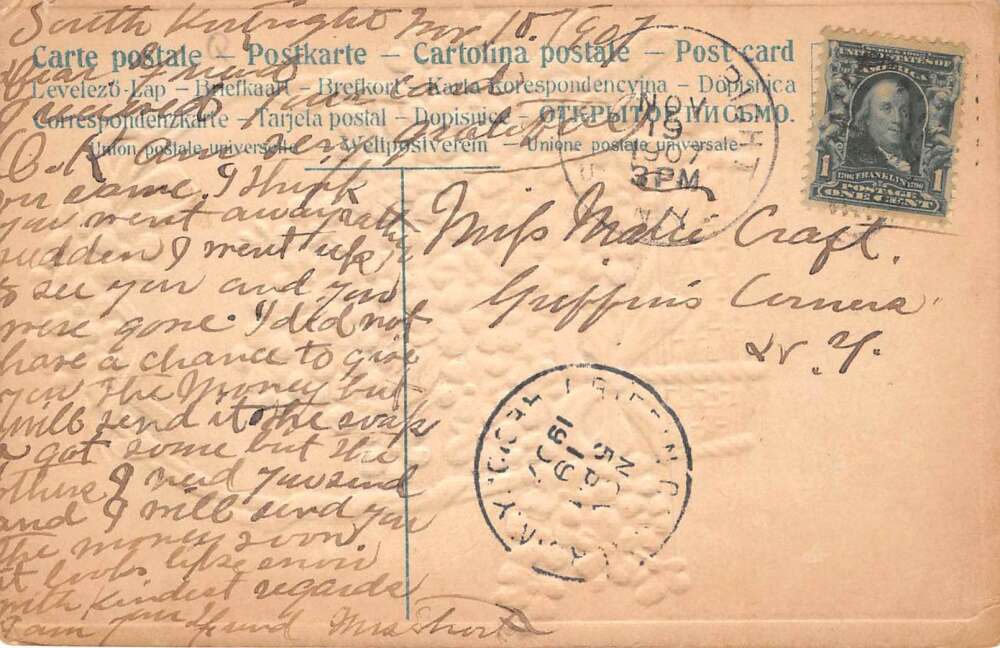 South Kortright Nov 18 1907
Carte postale – Postkarte – Cartolina postale – Post card
Dear friend
Levelező-Lap – Briefkaart – Brefkort – Karta Korespondencyjna – Dopisnica
received your card
Correspondenzkarte – Tarjeta postal – Dopisnice – ОТКРЫТОЕ ПИСЬМО.
O.K. am very grateful
Union postale universelle Weltpostverein – Unione postale universale
for same. I think
you went away
sudden I went up
to see you and you
were gone. I did not
have a chance to give
you the Money but
will send it to the
got some but the
others I need you send
and I will send you
the money soon.
it looks like snow
with kindest regards
I am your friend Mrs
NOV
19
1907
3PM
N.Y.
UNITED STATES OF
AMERICA
1706 FRANKLIN 1790
POSTAGE
1 ONE CENT 1
Miss Marie Craft.
Griffins Corners
N. Y.
GRIFFIN CORNERS, N.Y. REC'D.
NOV
19
5 PM
1907